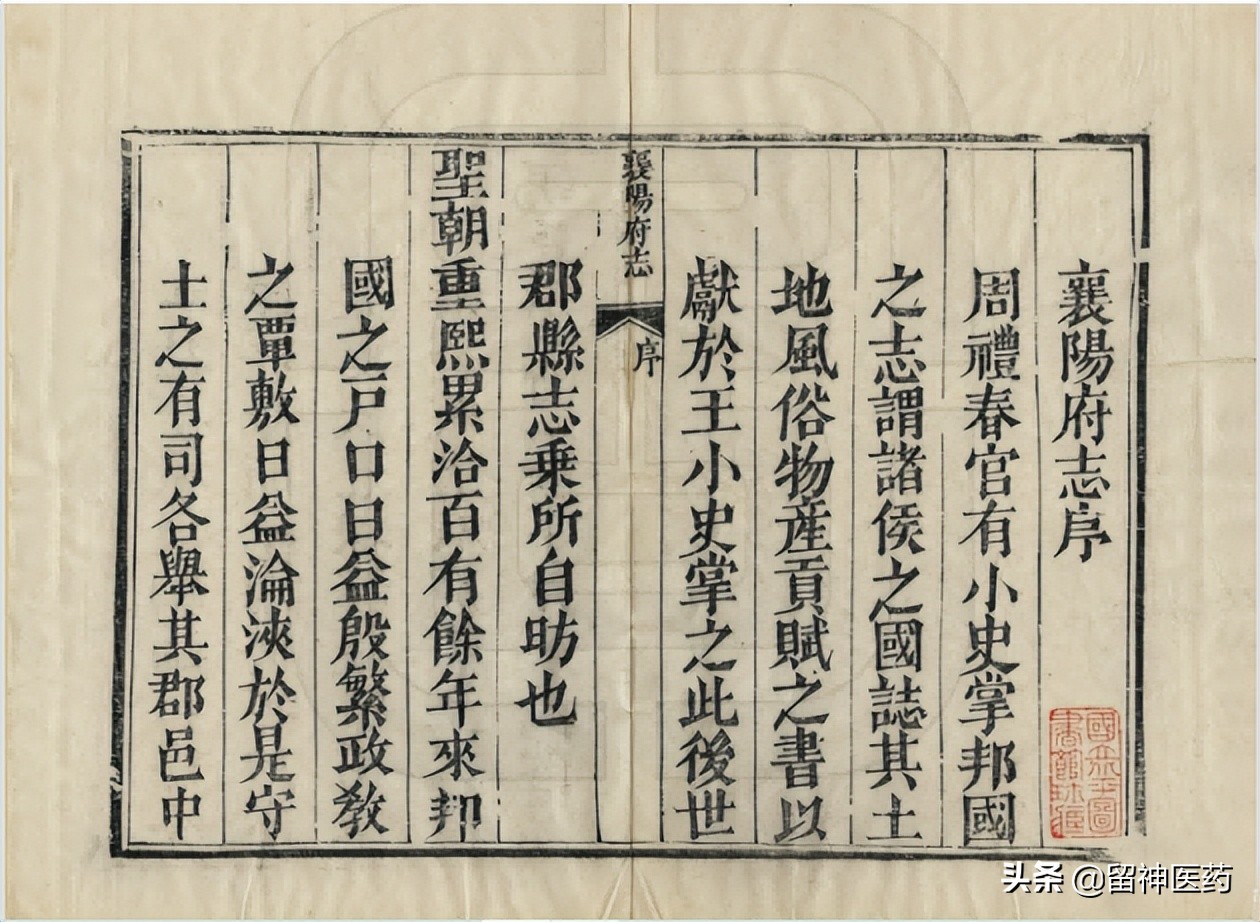 襄陽府志序
周禮春官有小史掌邦國
之志謂諸侯之國誌其土
地風俗物産貢賦之書以
獻於王小史掌之此後世
襄陽府志
序
郡縣志乗所自昉也
聖朝重熙累洽百有餘年來邦
國之戸口日益殷繁政教
之覃敷日益淪浹於是守
土之有司各舉其郡邑中
頭条 @留神医药